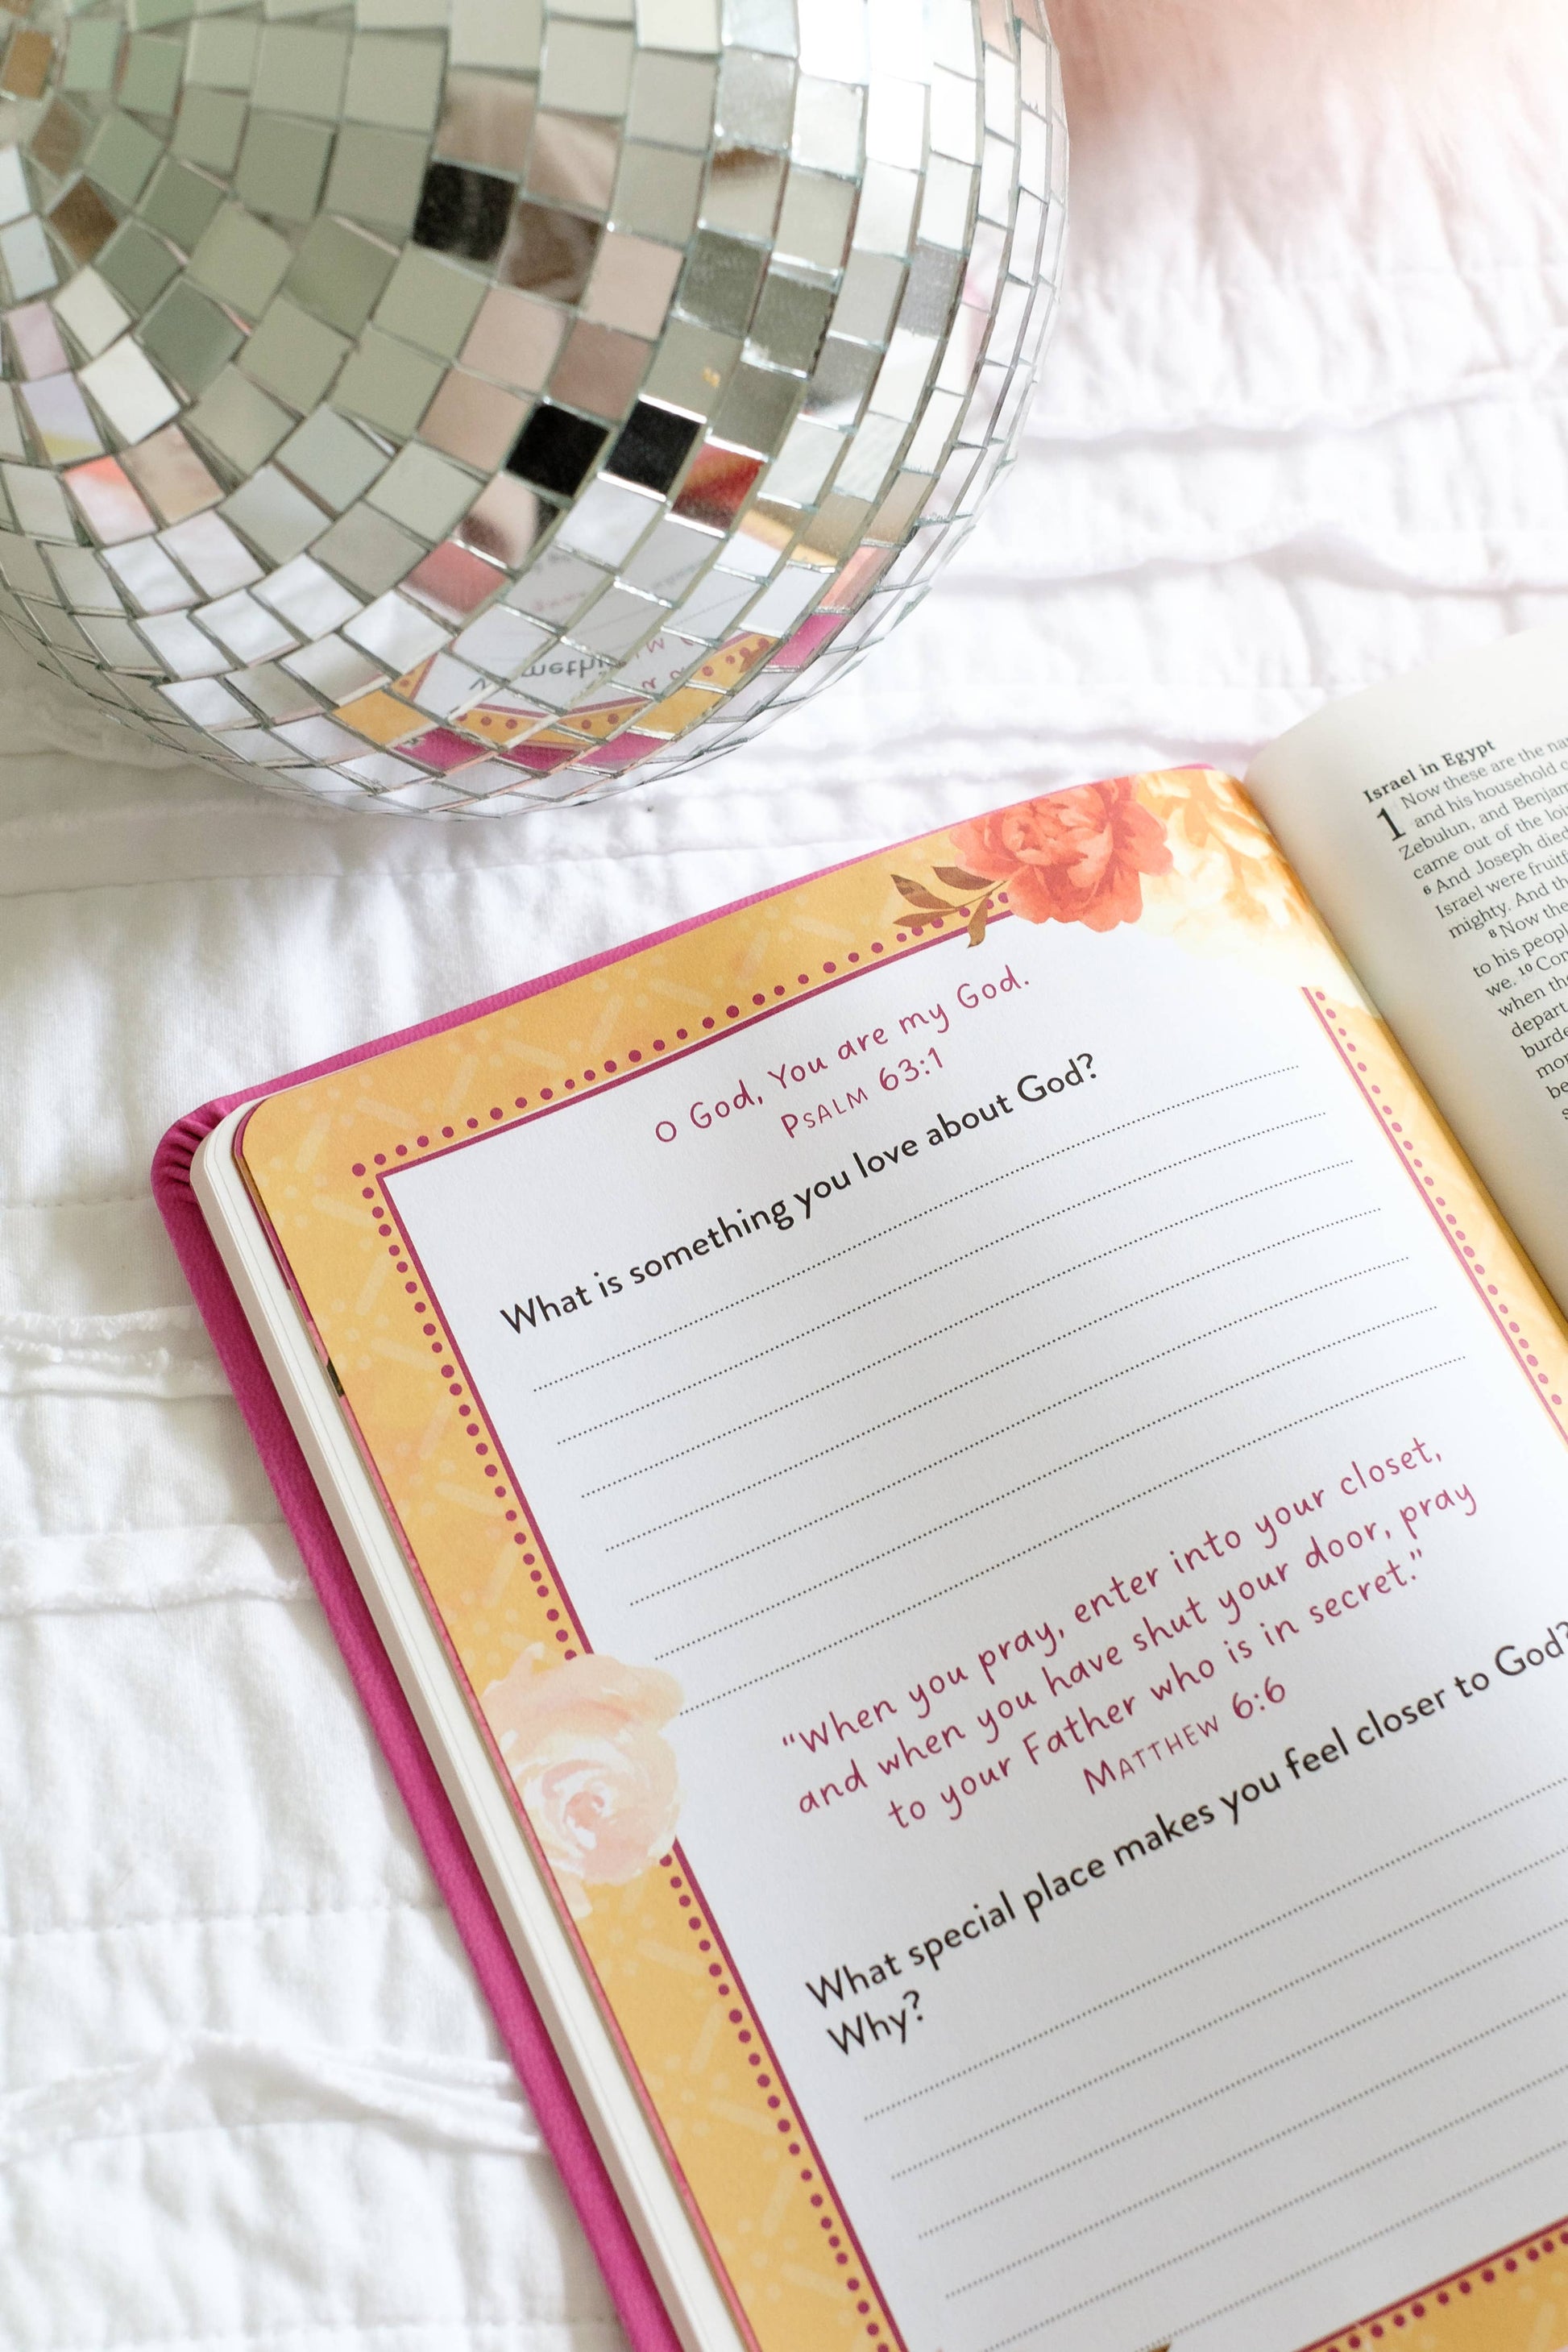 O God, You are my God.
PSALM 63:1
What is something you love about God?
"When you pray, enter into your closet,
and when you have shut your door, pray
to your Father who is in secret."
MATTHEW 6:6
What special place makes you feel closer to God?
Why?
Israel in Egypt
1 Now these are the
and his household
Zebulun, and
came out of the
6 And Joseph died
Israel were
mighty. And
8 Now the
to his
we. 10
when
depart